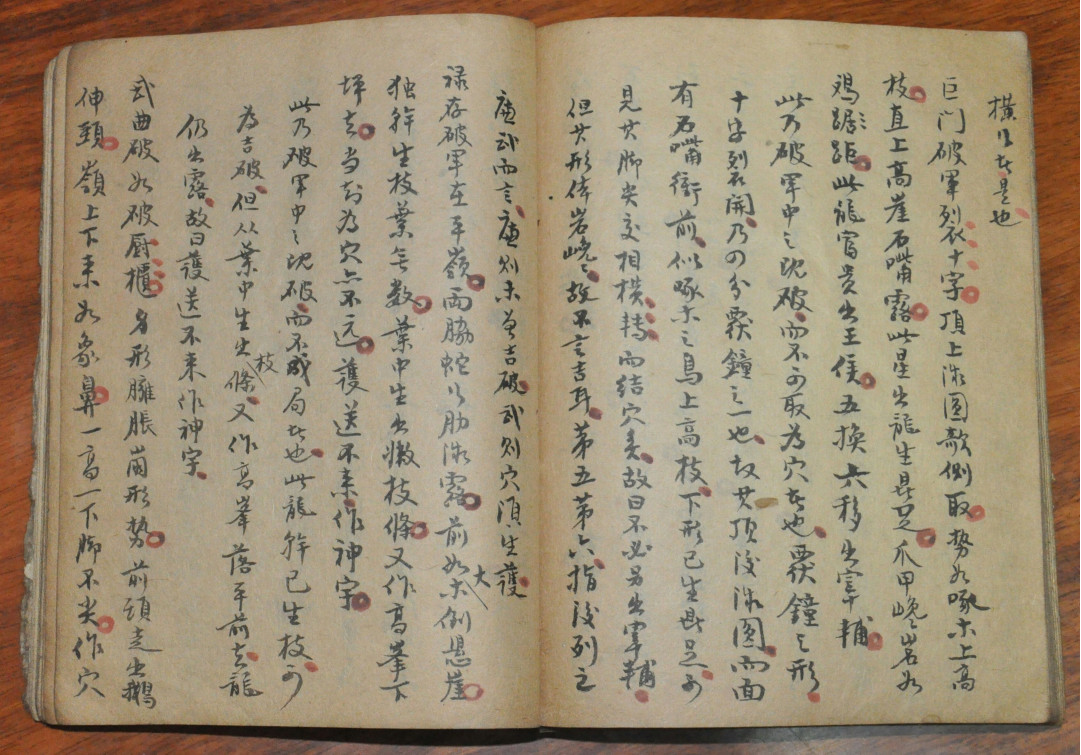 橫行者是也
巨门破軍裂十字頂上涨圓欹側取势如啄木上高
枝直上高崖石嘴露此星出龍生是足爪甲巉岩如
鸡踞距此龍富贵出王侯五换六移出宰輔
此乃破軍中之既破而不可取為穴者也覆鐘之形
十字裂開乃四分覆鐘之一也故其頂後涨圓而面
有石嘴衔前似啄木之鳥上高枝下形已生是足可
見穴脚尖交相横轉而结穴矣故曰不必另出宰輔
但其形体岩巉故不言吉耳第五第六指後列之
廉武而言廉则未若吉破武则穴須生護
禄存破軍在平嶺两脇蛇行肋涨露前如大木倒悬崖
独幹生枝葉無数葉中生出嫩枝條又作高峯下
坪去当知為穴亦不远護送不来作神字
此乃破軍中之既破而不成局者也此龍幹已生枝可
為吉破但从葉中生出枝條又作高峯落平前去龍
仍出露故曰護送不来作神字
武曲破如破厨櫃身形臃脹崗形势前頭走出鹅
伸頸嶺上下来如象鼻一高一下脚不尖作穴